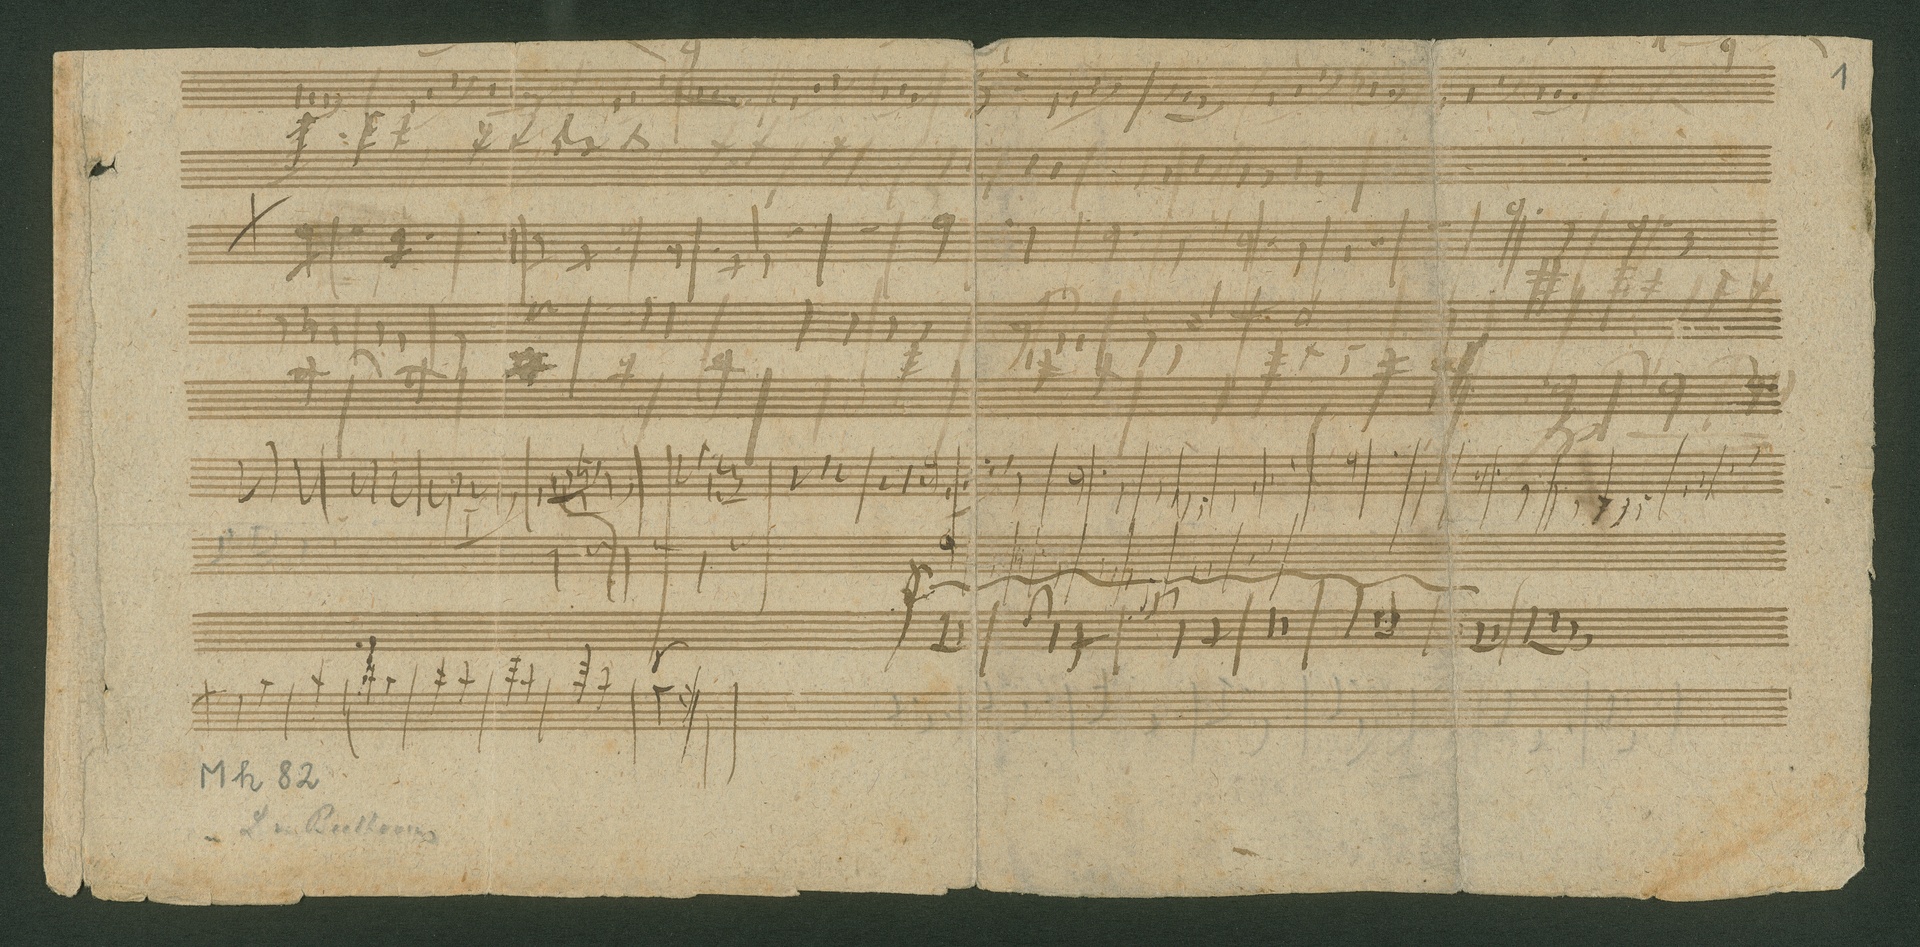 1
Mh 82
L v. Beethoven